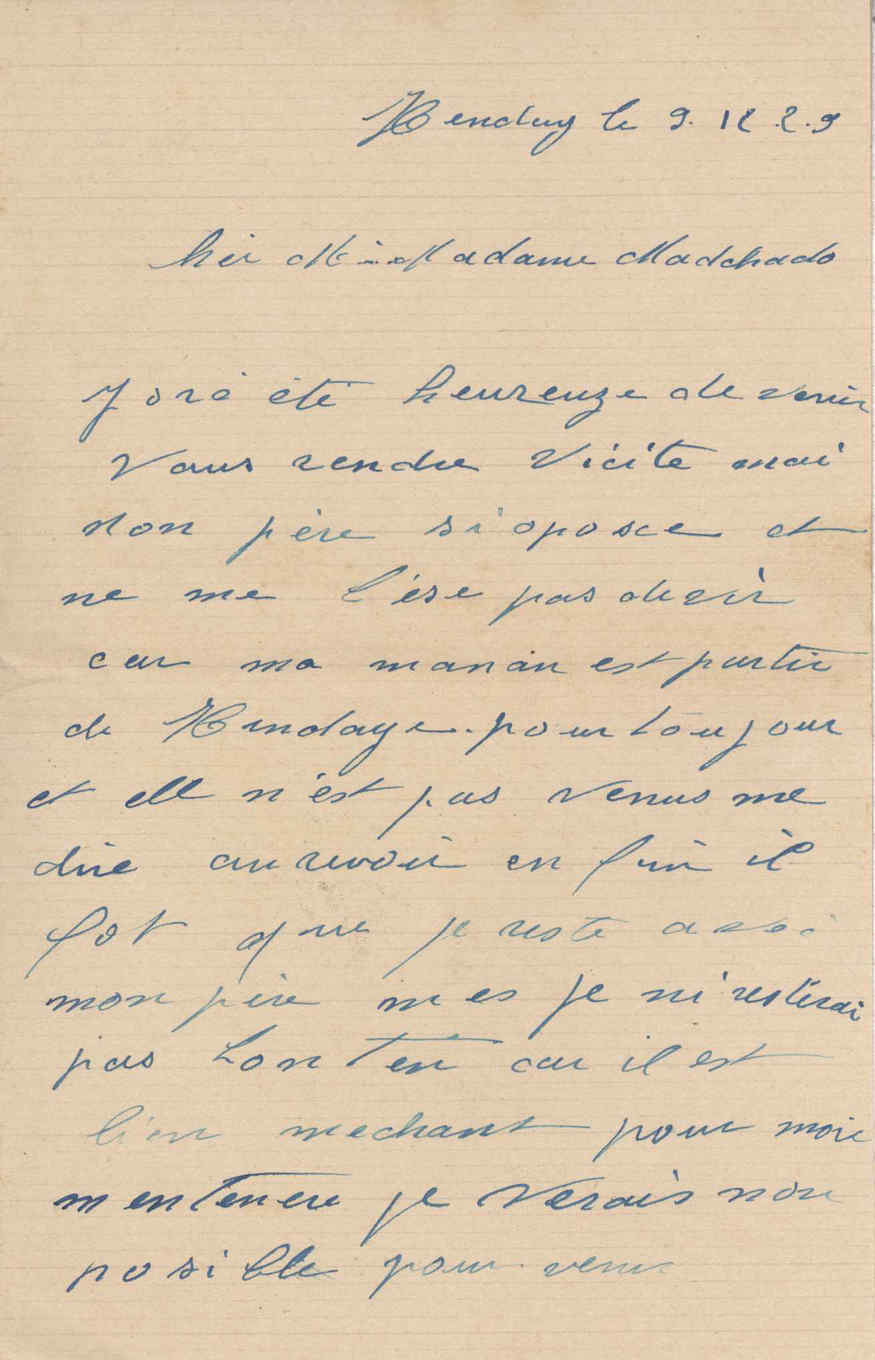 Henday le 9. 12. 2. 9
Cher M. Madame Madchado
J oré été heureuze de venir
Vous rendre Vicite mai
Mon père si oposce et
ne me l'ése pas desir
car ma manan est partir
de Hendaye. pour toujour
et elle n'est pas venus me
dire au revoir en fin il
fot que je reste avec
mon père mes je ni resterai
pas Lon Ten car il est
bien mechant pour moi
mentenere je Verais non
posible pour venir